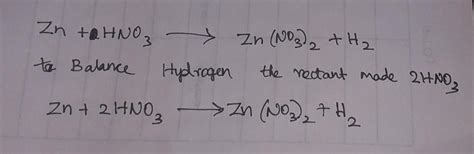 Zn + HNO₃ ⟶ Zn(NO₃)₂ + H₂
to Balance Hydrogen the rectant made 2HNO₃
Zn + 2HNO₃ ⟶ Zn(NO₃)₂ + H₂